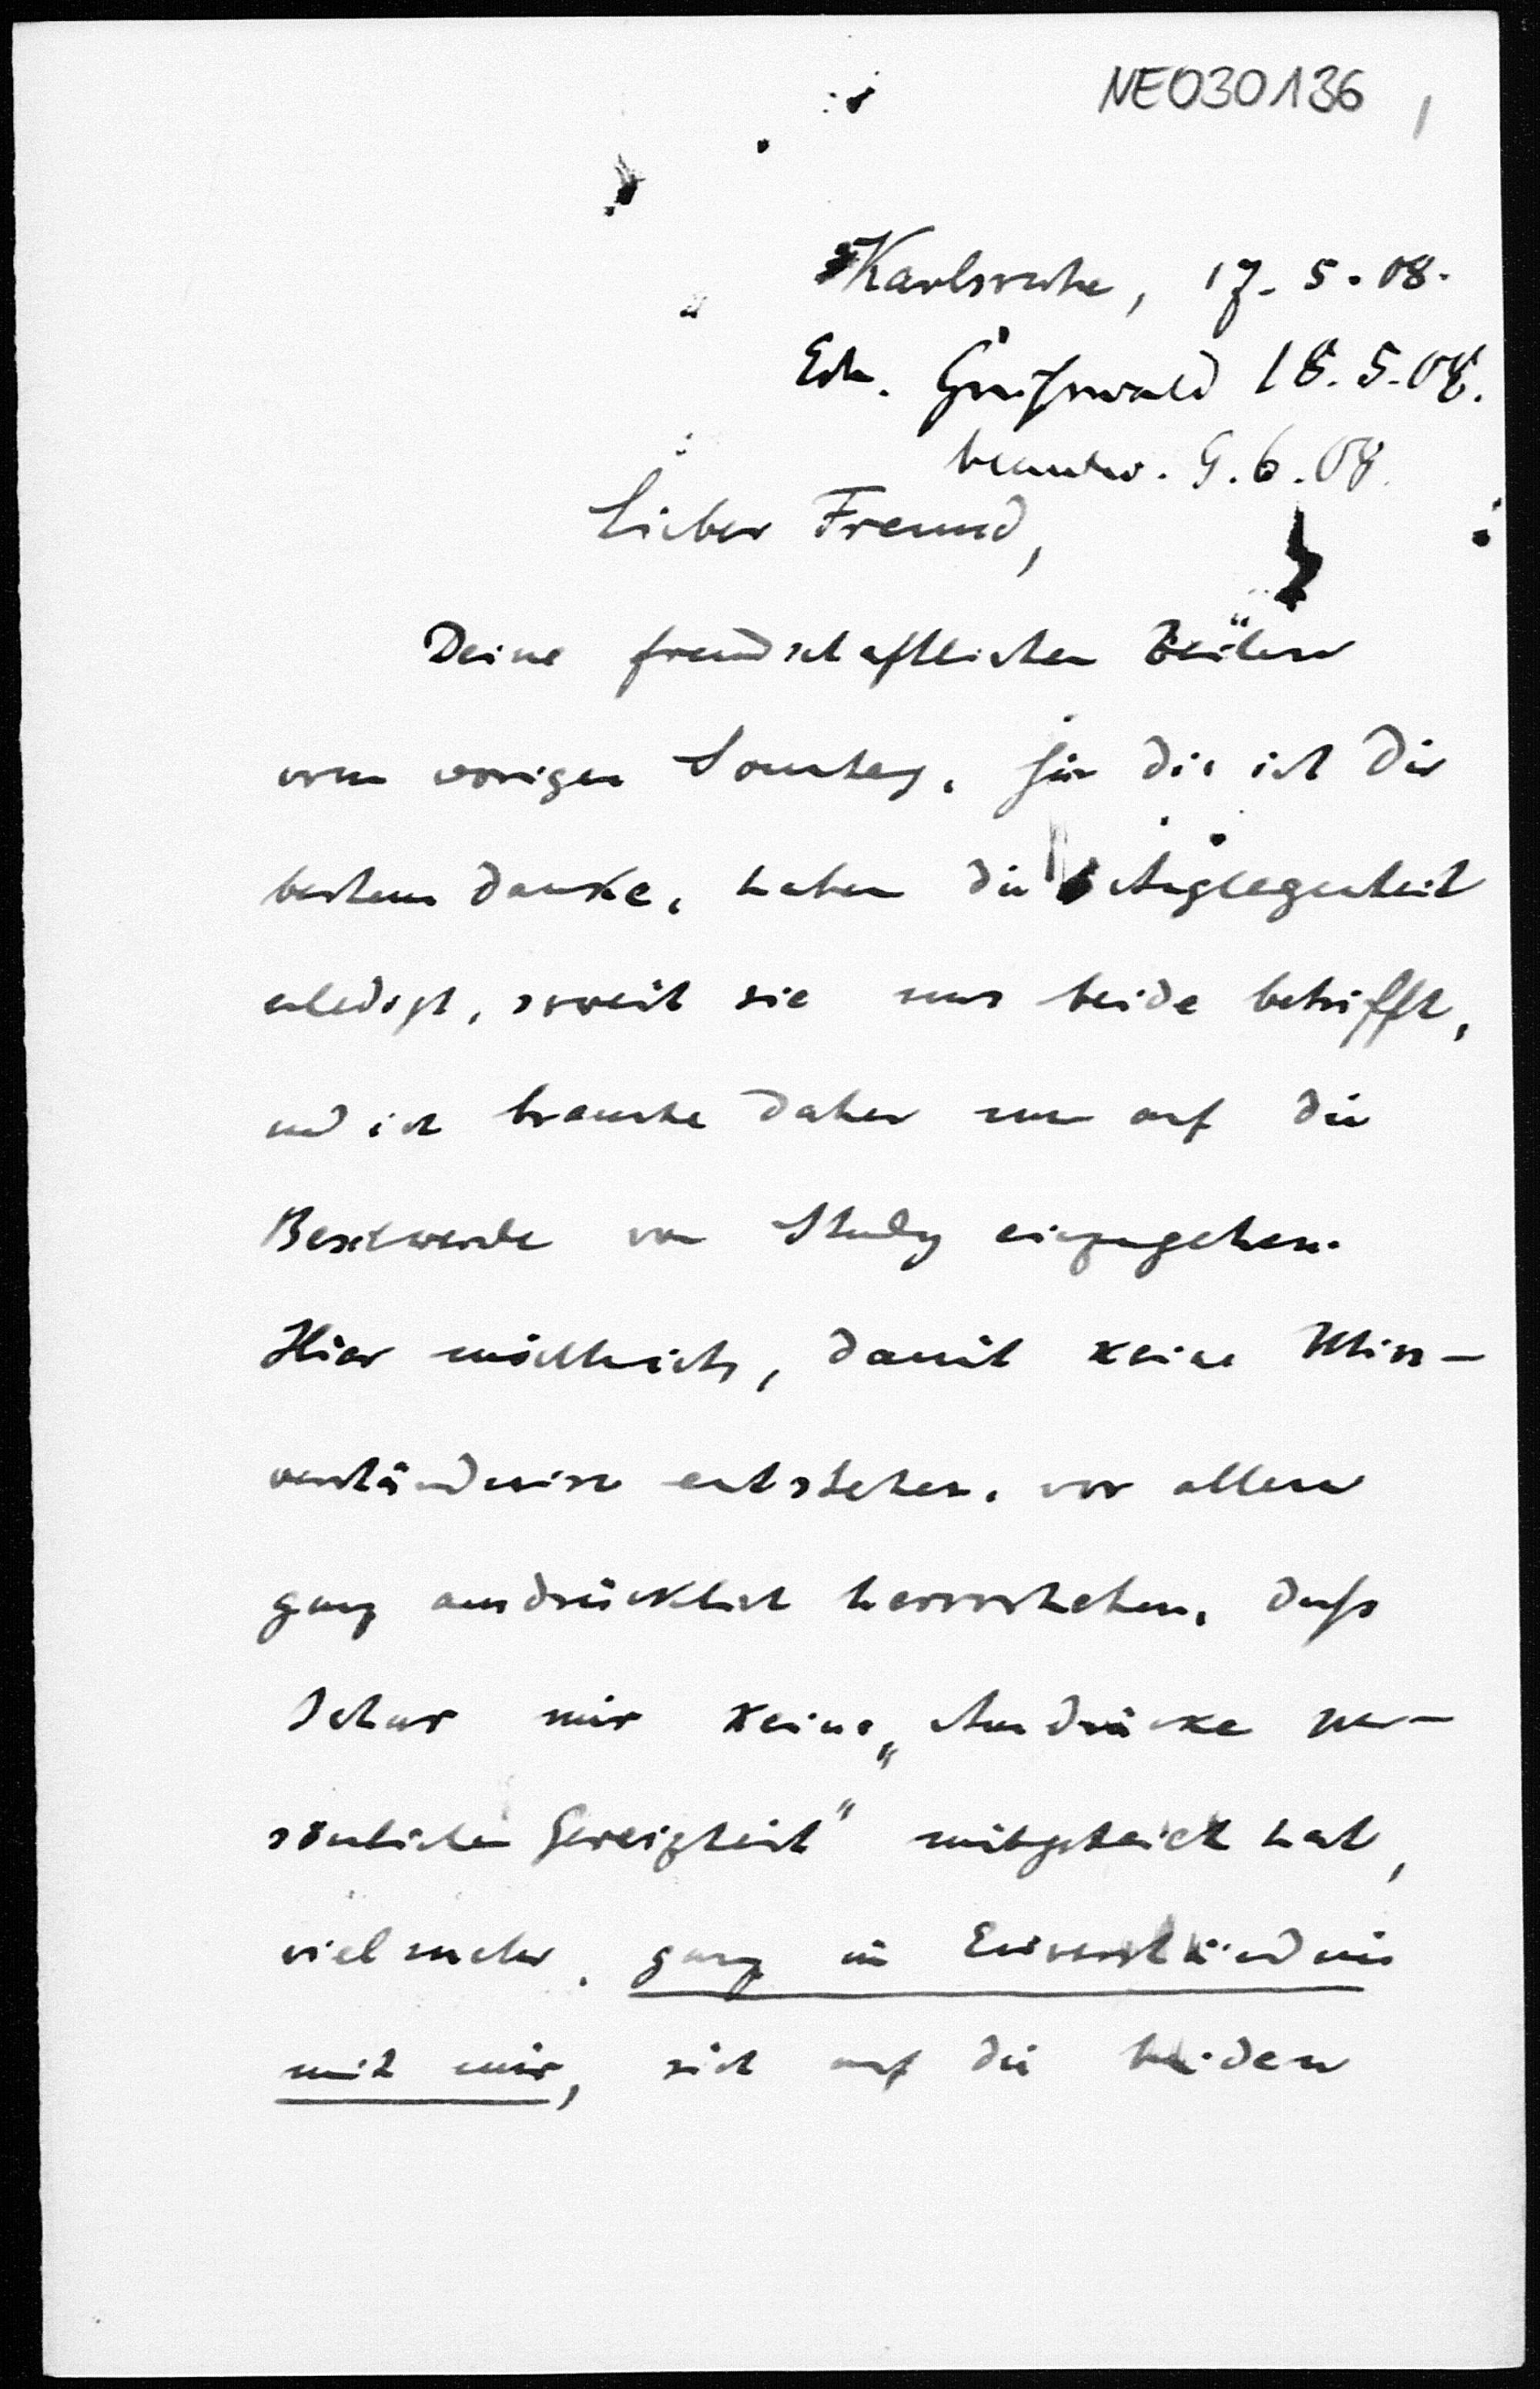 NE030136
Karlsruhe, 17. 5. 08.
Erh. Greifswald 18. 5. 08.
beantw. 9. 6. 08.
Lieber Freund,
Deine freundschaftlichen Zeilen
vom vorigen Sonntag, für die ich Dir
bestens danke, haben die Angelegenheit
erledigt, soweit sie uns beide betrifft,
und ich brauche daher nur auf die
Beschwerde von Study einzugehen.
Hier möchte ich, damit keine Miss-
verständnisse entstehen, vor allem
ganz ausdrücklich hervorheben, dass
Schur mir keine „Ausdrücke per-
sönlicher Gereiztheit" mitgeteilt hat,
vielmehr, ganz im Einverständnis
mit mir, sich auf die beiden